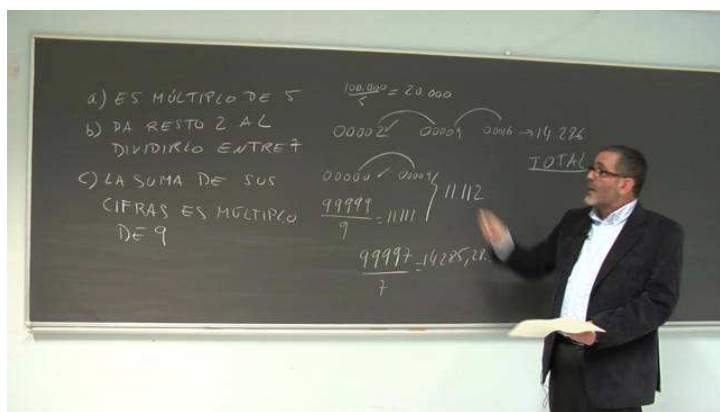 a) ES MÚLTIPLO DE 5
b) DA RESTO 2 AL
DIVIDIRLO ENTRE 7
c) LA SUMA DE SUS
CIFRAS ES MÚLTIPLO
DE 9
100.000/5 = 20.000
00002 ✓ 00009 00016 → 14.286
TOTAL
00000 ✓ 00009
99999/9 = 11.111 } 11.112
99997/7 = 14285,28